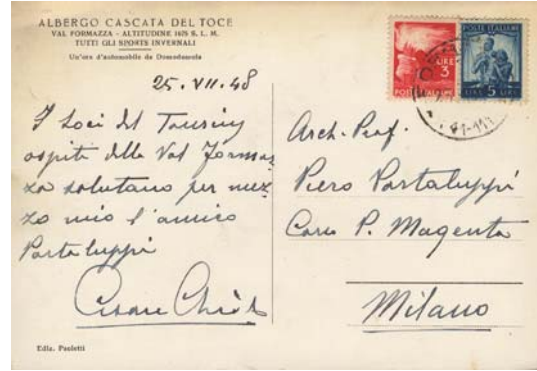 ALBERGO CASCATA DEL TOCE
VAL FORMAZZA - ALTITUDINE 1675 S. L. M.
TUTTI GLI SPORTS INVERNALI
Un'ora d'automobile da Domodossola
25.VII.48
I Soci del Touring
ospiti della Val Formaz
za salutano per mez
zo mio l'amico
Portaluppi
Cesare Chiodi
Ediz. Paoletti
LIRE
3
POSTE ITALIANE
POSTE ITALIANE
LIRE 5 LIRE
Arch. Prof.
Piero Portaluppi
Corso P. Magenta
Milano